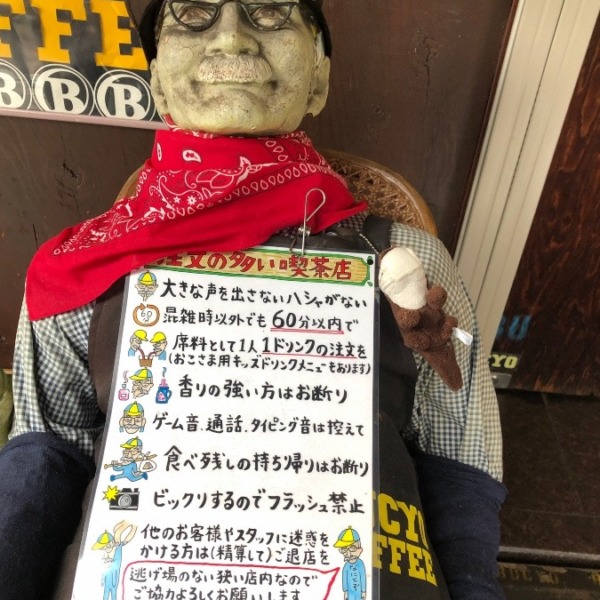 FFEE
B B B
注文の多い喫茶店
大きな声を出さないハシャがない
混雑時以外でも60分以内で
席料として1人1ドリンクの注文を
(おこさま用キッズドリンクメニューもあります)
香りの強い方はお断り
ゲーム音、通話、タイピング音は控えて
食べ残しの持ち帰りはお断り
ビックリするのでフラッシュ禁止
他のお客様やスタッフに迷惑を
かける方は(精算して)ご退店を
逃げ場のない狭い店内なので
ご協力よろしくお願いします
なにとぞ
CYO
FFEE